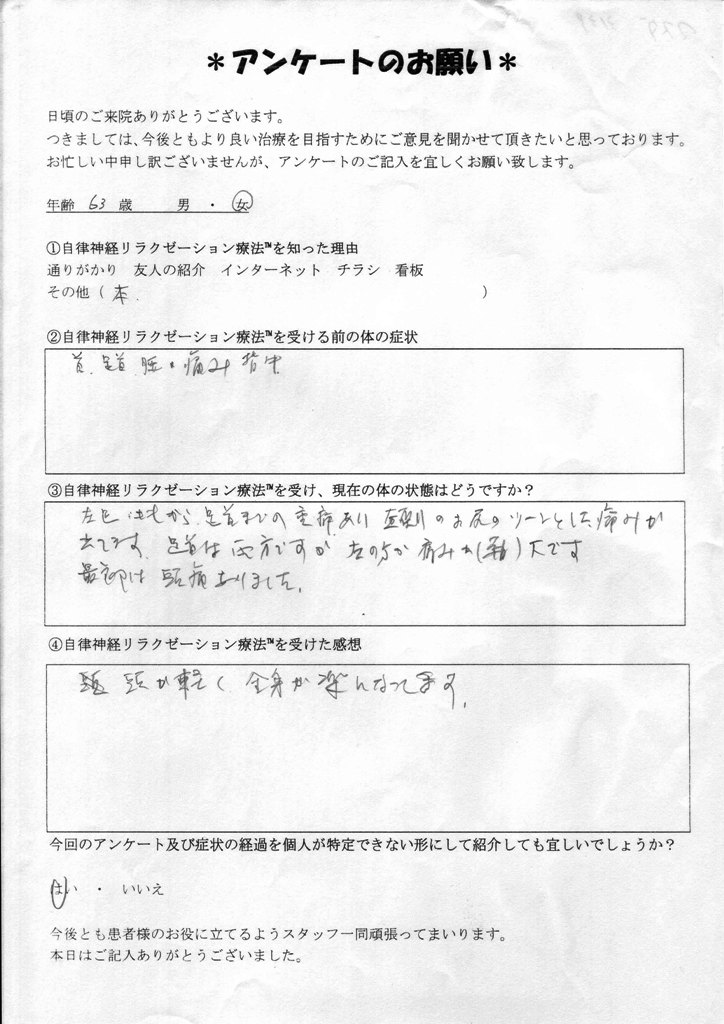 ＊アンケートのお願い＊
日頃のご来院ありがとうございます。
つきましては、今後ともより良い治療を目指すためにご意見を聞かせて頂きたいと思っております。
お忙しい中申し訳ございませんが、アンケートのご記入を宜しくお願い致します。
年齢 63 歳 男 ・ 女
①自律神経リラクゼーション療法™を知った理由
通りがかり 友人の紹介 インターネット チラシ 看板
その他（ 本. ）
②自律神経リラクゼーション療法™を受ける前の体の症状
首. 足首. 腰 痛み 背中
③自律神経リラクゼーション療法™を受け、現在の体の状態はどうですか？
から 足首までの 痛あり のお尻の ツーンとした痛みが
出てます. 足首は両方ですが 左の方が 痛み 大です
最初は 頭痛ありました.
④自律神経リラクゼーション療法™を受けた感想
頭が軽く 全身が楽になってます.
今回のアンケート及び症状の経過を個人が特定できない形にして紹介しても宜しいでしょうか？
はい ・ いいえ
今後とも患者様のお役に立てるようスタッフ一同頑張ってまいります。
本日はご記入ありがとうございました。